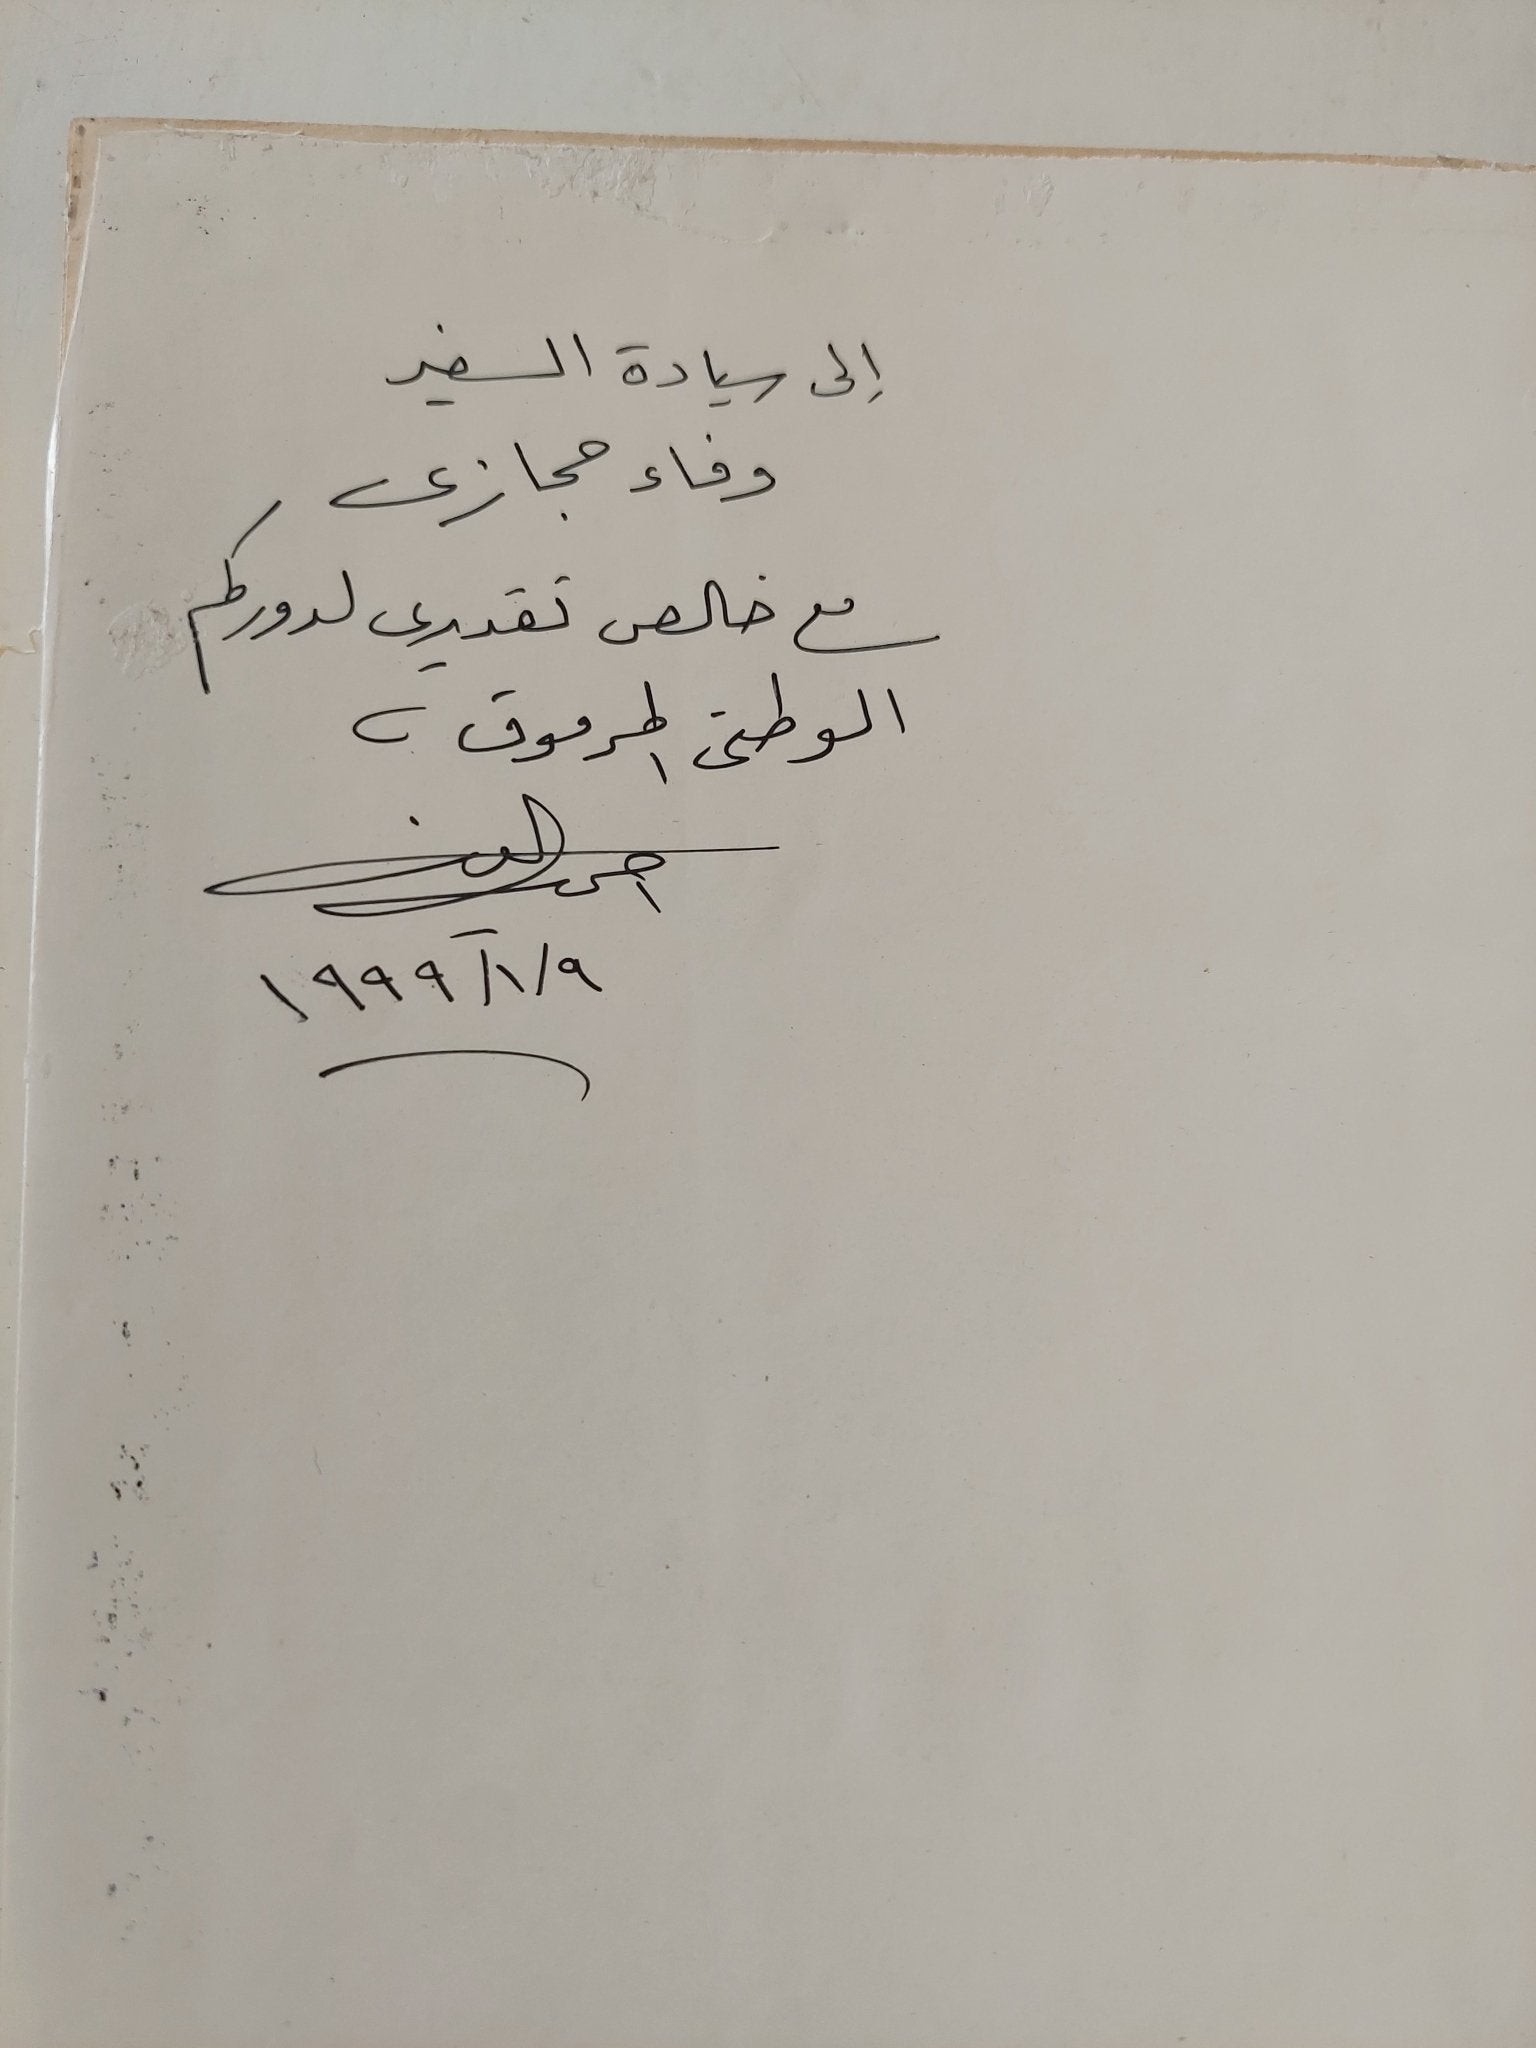 إلى سيادة السفير
وفاء حجازى
مع خالص تقديرى لدوركم
الوطنى المرموق
٩/١/١٩٩٩